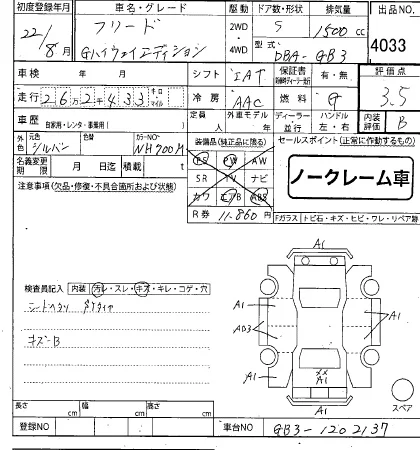 初度登録年月 車名・グレード 駆動 ドア数・形状 排気量 出品NO.
22/8月 フリード Gハイウェイエディション 2WD・4WD 5 1500cc 4033
型式 DBA-GB3
車検 年 月 シフト IAT 保証書 有・無 評価点
走行 26万2千433 キロ・マイル 冷房 AAC 燃料 G 3.5
車歴 自家用・レンタ・事業用( ) 定員 人 外車モデル 年 ディーラー・並行 ハンドル 左・右 内装評価 B
外色 元色 シルバー 色替 カラーNO NH700M 装備品(純正品に限る) セールスポイント(正常に作動するもの)
名義変更期限 月 日迄 積載 t PS PW AW
SR TV ナビ ノークレーム車
注意事項(欠品・修復・不具合箇所および状態) カワ エアB ABS
R券 11,860円 Fガラス トビ石・キズ・ヒビ・ワレ・リペア跡
A1
検査員記入 内装 汚レ・スレ・キズ・キレ・コゲ・穴
A1 A1
AD3
キズ-B
A1 A1 A1
A1
スペア
長さ cm 幅 cm 高さ cm
登録NO 車台NO GB3-1202137